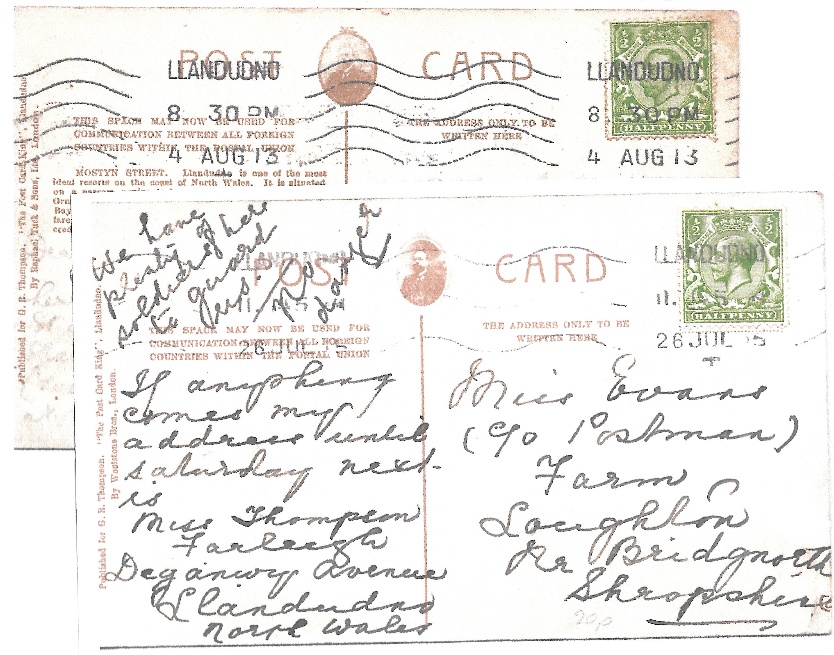 POST CARD
LLANDUDNO
8. 30 PM
4 AUG 13
LLANDUDNO
8. 30 PM
4 AUG 13
HALFPENNY
THIS SPACE MAY NOW BE USED FOR
COMMUNICATION BETWEEN ALL FOREIGN
COUNTRIES WITHIN THE POSTAL UNION
THE ADDRESS ONLY TO BE
WRITTEN HERE
MOSTYN STREET. Llandudno is one of the most
ideal resorts on the coast of North Wales. It is situated
Published for G. R. Thompson, "The Post Card King", Llandudno,
By Raphael Tuck & Sons, Ltd., London.
We have
plenty of
soldiers here
to guard
us, no
danger
POST CARD
LLANDUDNO
11.
26 JUL 15
HALFPENNY
THIS SPACE MAY NOW BE USED FOR
COMMUNICATION BETWEEN ALL FOREIGN
COUNTRIES WITHIN THE POSTAL UNION
THE ADDRESS ONLY TO BE
WRITTEN HERE
If anything
comes my
address until
saturday next
is
Miss Thompson
Farleigh
Deganwy Avenue
Llandudno
North Wales
Miss Evans
(C/o Postman)
Farm
Loughton
Nr Bridgnorth
Shropshire
20p
Published for G. R. Thompson, "The Post Card King", Llandudno,
By Woolstone Bros., London.